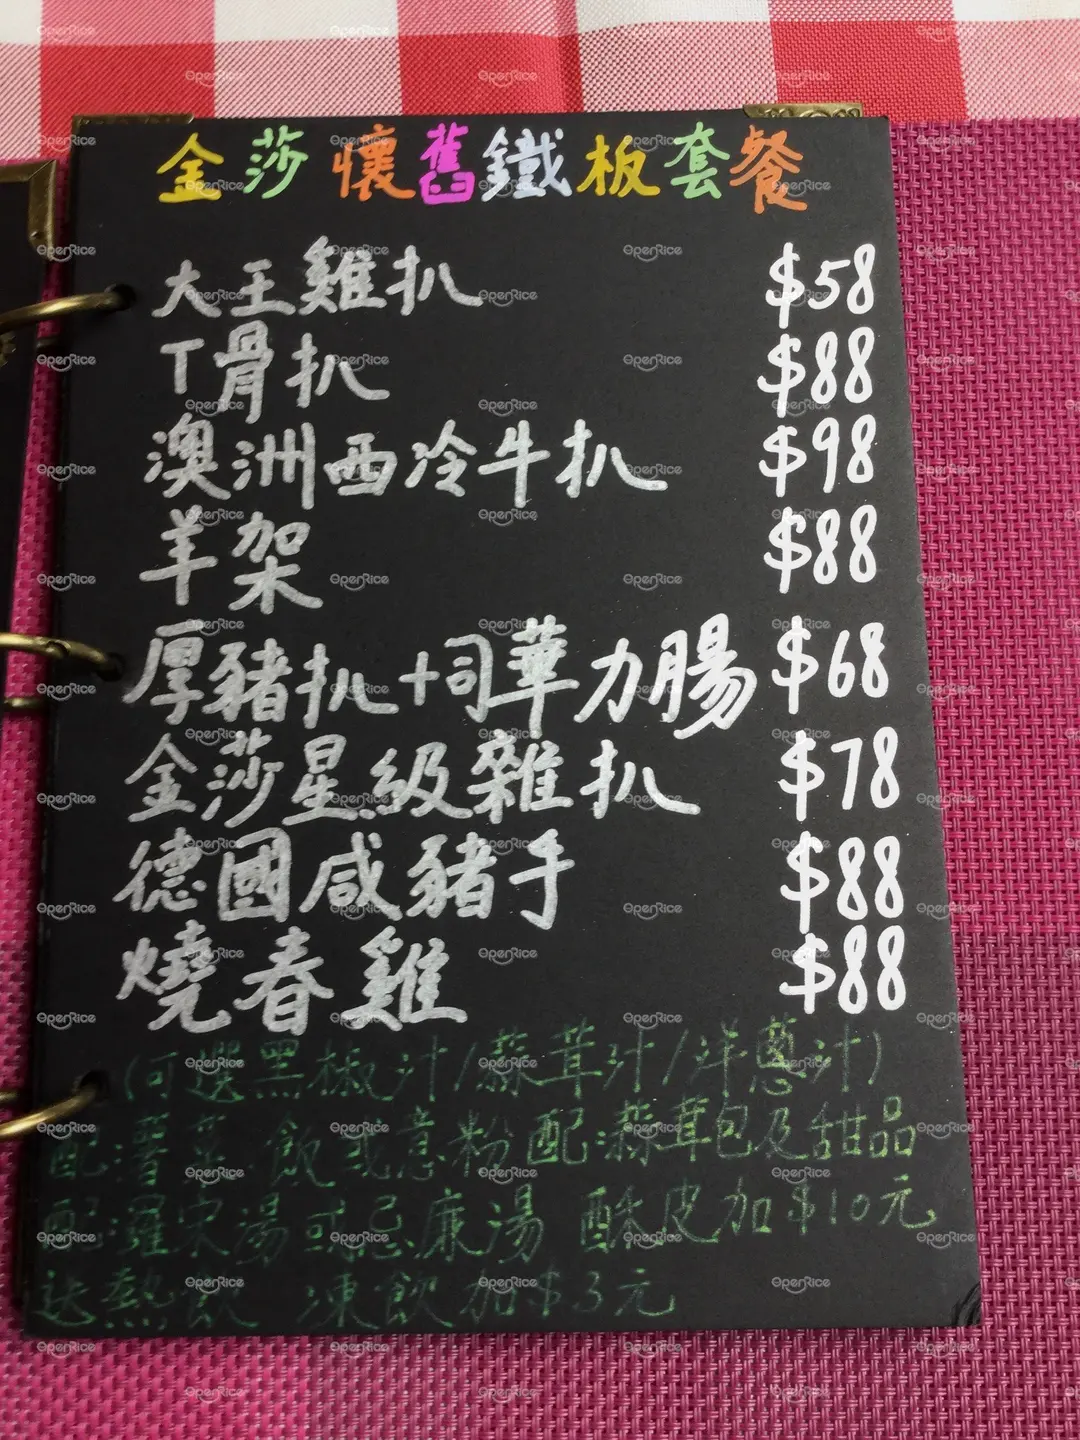 金莎懷舊鐵板套餐
大王雞扒 $58
T骨扒 $88
澳洲西冷牛扒 $98
羊架 $88
厚豬扒+司華力腸 $68
金莎星級雜扒 $78
德國咸豬手 $88
燒春雞 $88
(可選黑椒汁/蒜茸汁/洋蔥汁)
配薯菜 飯或意粉 配蒜茸包及甜品
配羅宋湯或忌廉湯 酥皮加$10元
送熱飲 凍飲加$3元
OpenRice